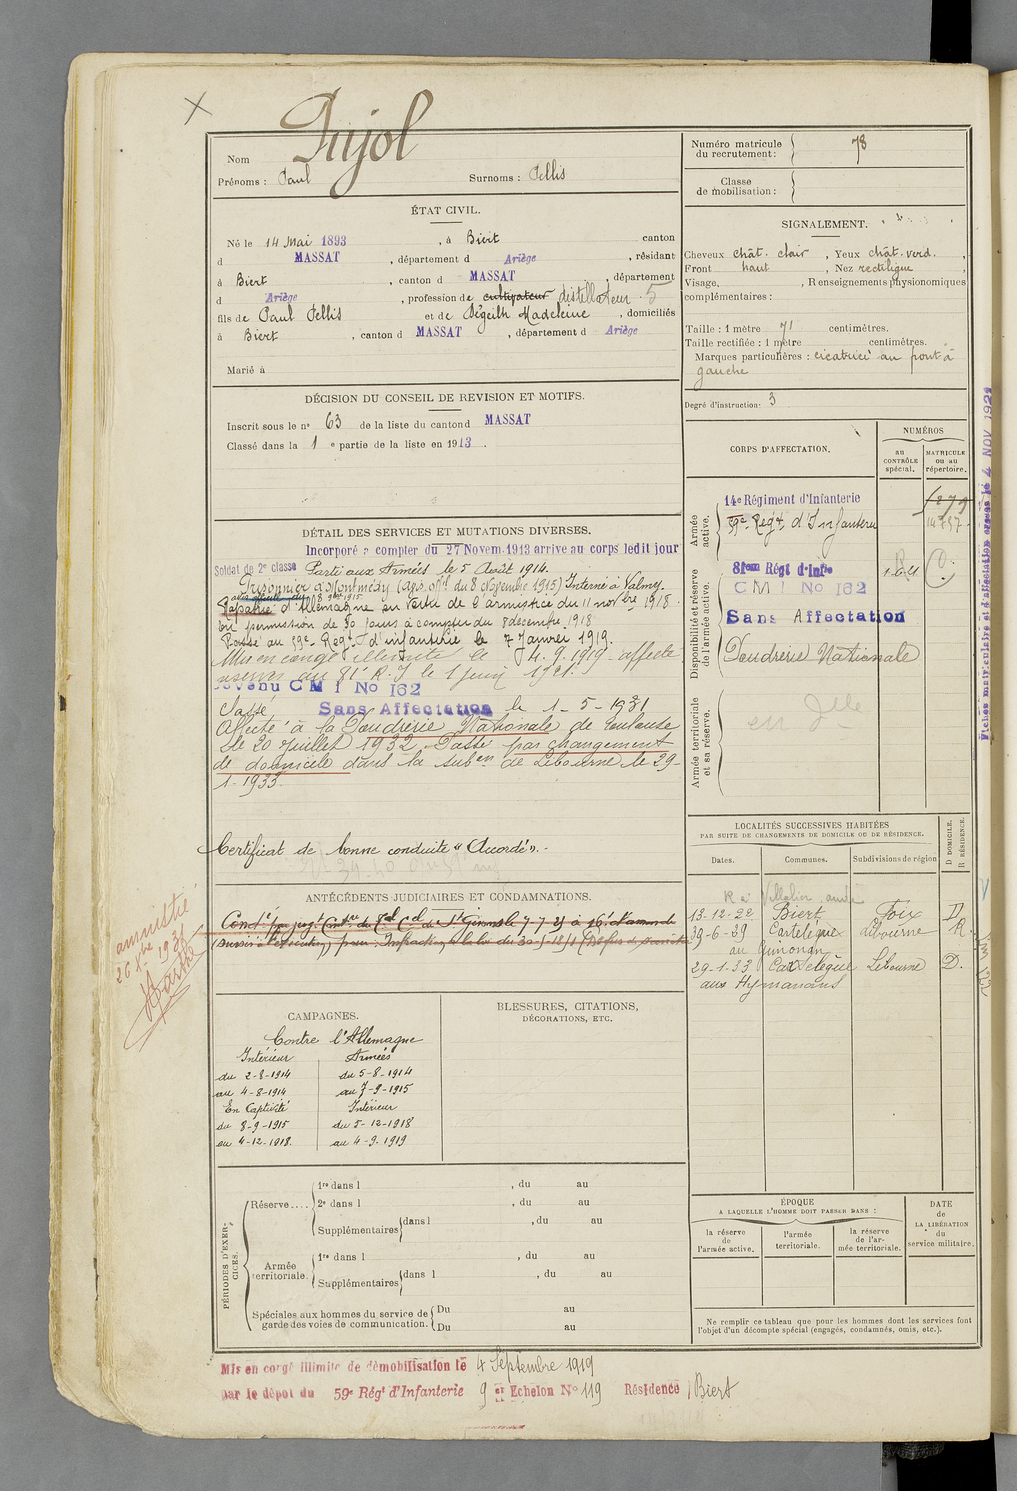 Pujol
Nom
Prénoms : Paul Surnoms : Pellis
Numéro matricule du recrutement : 78
Classe de mobilisation :
ÉTAT CIVIL.
Né le 14 Mai 1893, à Biert canton
d MASSAT, département d Ariège, résidant
à Biert, canton d MASSAT, département
d Ariège, profession de cultivateur distillateur 5
fils de Paul Pellis et de Pégeilh Madeleine, domiciliés
à Biert, canton d MASSAT, département d Ariège
Marié à
SIGNALEMENT.
Cheveux chât. clair, Yeux chât. verd.,
Front haut, Nez rectiligne,
Visage, Renseignements physionomiques
complémentaires :
Taille : 1 mètre 71 centimètres.
Taille rectifiée : 1 mètre centimètres.
Marques particulières : cicatrice au front à
gauche
Degré d'instruction : 3
DÉCISION DU CONSEIL DE REVISION ET MOTIFS.
Inscrit sous le no 63 de la liste du canton d MASSAT
Classé dans la 1 e partie de la liste en 1913.
DÉTAIL DES SERVICES ET MUTATIONS DIVERSES.
Incorporé a compter du 27 Novem. 1913 arrive au corps ledit jour
Soldat de 2e classe Parti aux Armées le 5 Août 1914.
Prisonnier à Montmédy (avis off. du 8 Novembre 1915) Interné à Valmy.
Rapatrié d'Allemagne en vertu de l'armistice du 11 novbre 1918.
En permission de 30 jours à compter du 8 décembre 1918
Passé au 59e Regt d'infanterie le 7 Janvier 1919.
Mis en congé illimité le 4.9.1919 affecté
réserve au 81e R.I le 1 juin 1921.
devenu CMI No 162
Classé Sans Affectation le 1-5-1931
Affecté à la Poudrerie Nationale de Toulouse
le 20 Juillet 1932. Passé par changement
de domicile dans la subon de Libourne le 29-
1-1933.
Certificat de bonne conduite « Accordé ».-
CORPS D'AFFECTATION.
NUMÉROS
au CONTRÔLE spécial.
MATRICULE ou au répertoire.
Armée active.
14e Régiment d'Infanterie
59e Regt. d'Infanterie
Disponibilité et réserve de l'armée active.
81eme Régt d'Infie
CMI No 162
Sans Affectation
Poudrerie Nationale
Armée territoriale et sa réserve.
Fiches matriculaire et d'affectation créées le 4 NOV 1921
LOCALITÉS SUCCESSIVES HABITÉES
PAR SUITE DE CHANGEMENTS DE DOMICILE OU DE RÉSIDENCE.
Dates. Communes. Subdivisions de région
D DOMICILE. R RÉSIDENCE.
13-12-22 Biert Foix D
39-6-29 Cartelègue Libourne R.
au Guinonan
29-1-33 Cartelègue Libourne D.
aux Aymanans
ANTÉCÉDENTS JUDICIAIRES ET CONDAMNATIONS.
amnistié
26 Xbre 1931
CAMPAGNES.
Contre l'Allemagne
Intérieur Armées
du 2-8-1914 du 5-8-1914
au 4-8-1914 au 7-9-1915
En Captivité Intérieur
du 8-9-1915 du 5-12-1918
au 4-12-1918. au 4-9-1919
BLESSURES, CITATIONS,
DÉCORATIONS, ETC.
PÉRIODES D'EXERCICES.
Réserve....
1re dans l , du au
2e dans l , du au
Supplémentaires dans l , du au
Armée territoriale.
1re dans l , du au
Supplémentaires dans l , du au
Spéciales aux hommes du service de garde des voies de communication.
Du au
Du au
ÉPOQUE
A LAQUELLE L'HOMME DOIT PASSER DANS :
la réserve de l'armée active.
l'armée territoriale.
la réserve de l'armée territoriale.
DATE de LA LIBÉRATION du service militaire.
Ne remplir ce tableau que pour les hommes dont les services font
l'objet d'un décompte spécial (engagés, condamnés, omis, etc.).
Mis en congé illimité de démobilisation le 4 Septembre 1919
par le dépot du 59e Régt d'Infanterie 9 er Echelon No 119 Résidence Biert